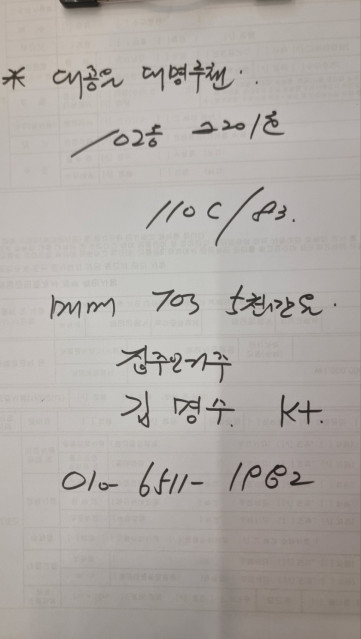 * 대공원 대명루첸..
102동 2201호
110C/83.
매매 7억 5천만원.
집주인거주
김 명수. K+.
010-6511-1982